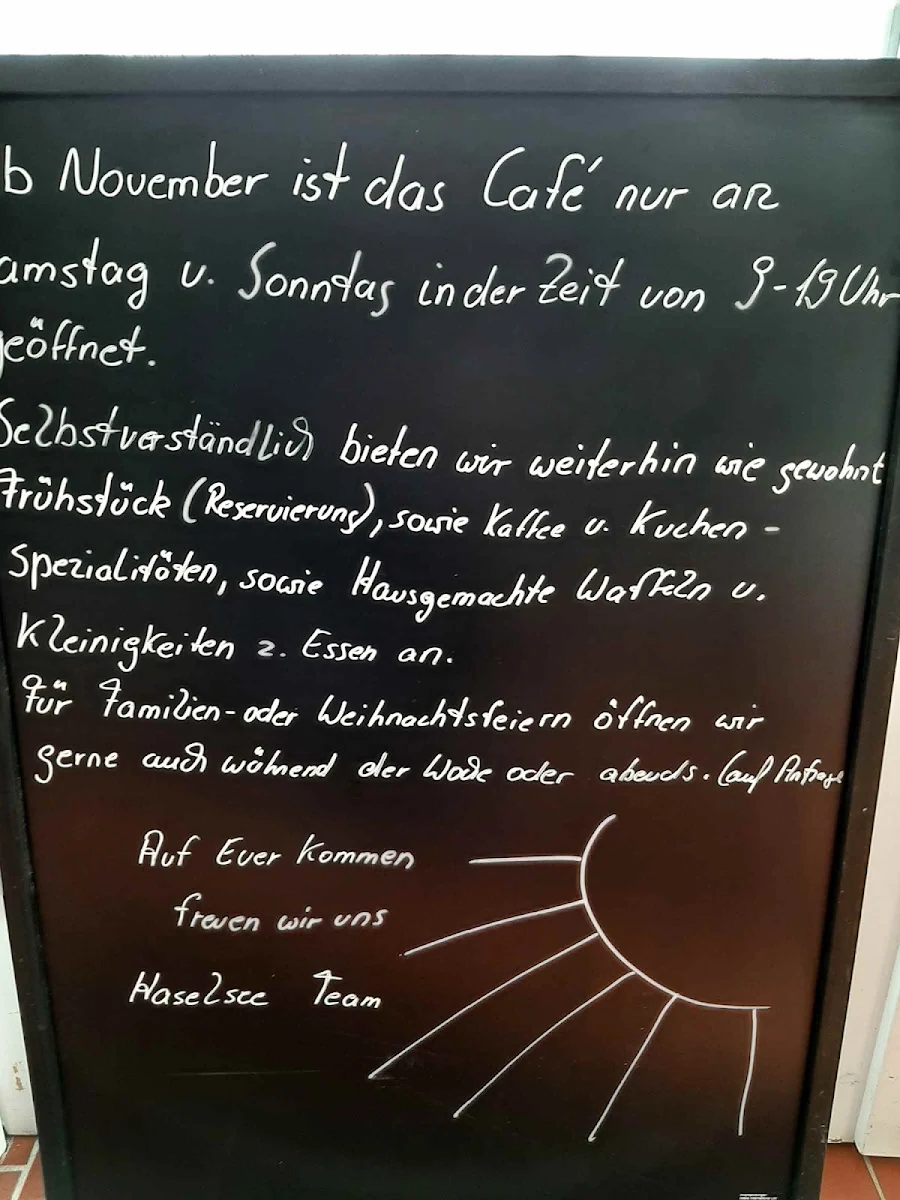 b November ist das Café nur an
amstag u. Sonntag in der Zeit von 9-19 Uhr
geöffnet.
Selbstverständlich bieten wir weiterhin wie gewohnt
Frühstück (Reservierung), sowie Kaffee u. Kuchen -
Spezialitäten, sowie Hausgemachte Waffeln u.
Kleinigkeiten z. Essen an.
Für Familien- oder Weihnachtsfeiern öffnen wir
gerne auch während der Woche oder abends. (auf Anfrage
Auf Euer Kommen
freuen wir uns
Haselsee Team